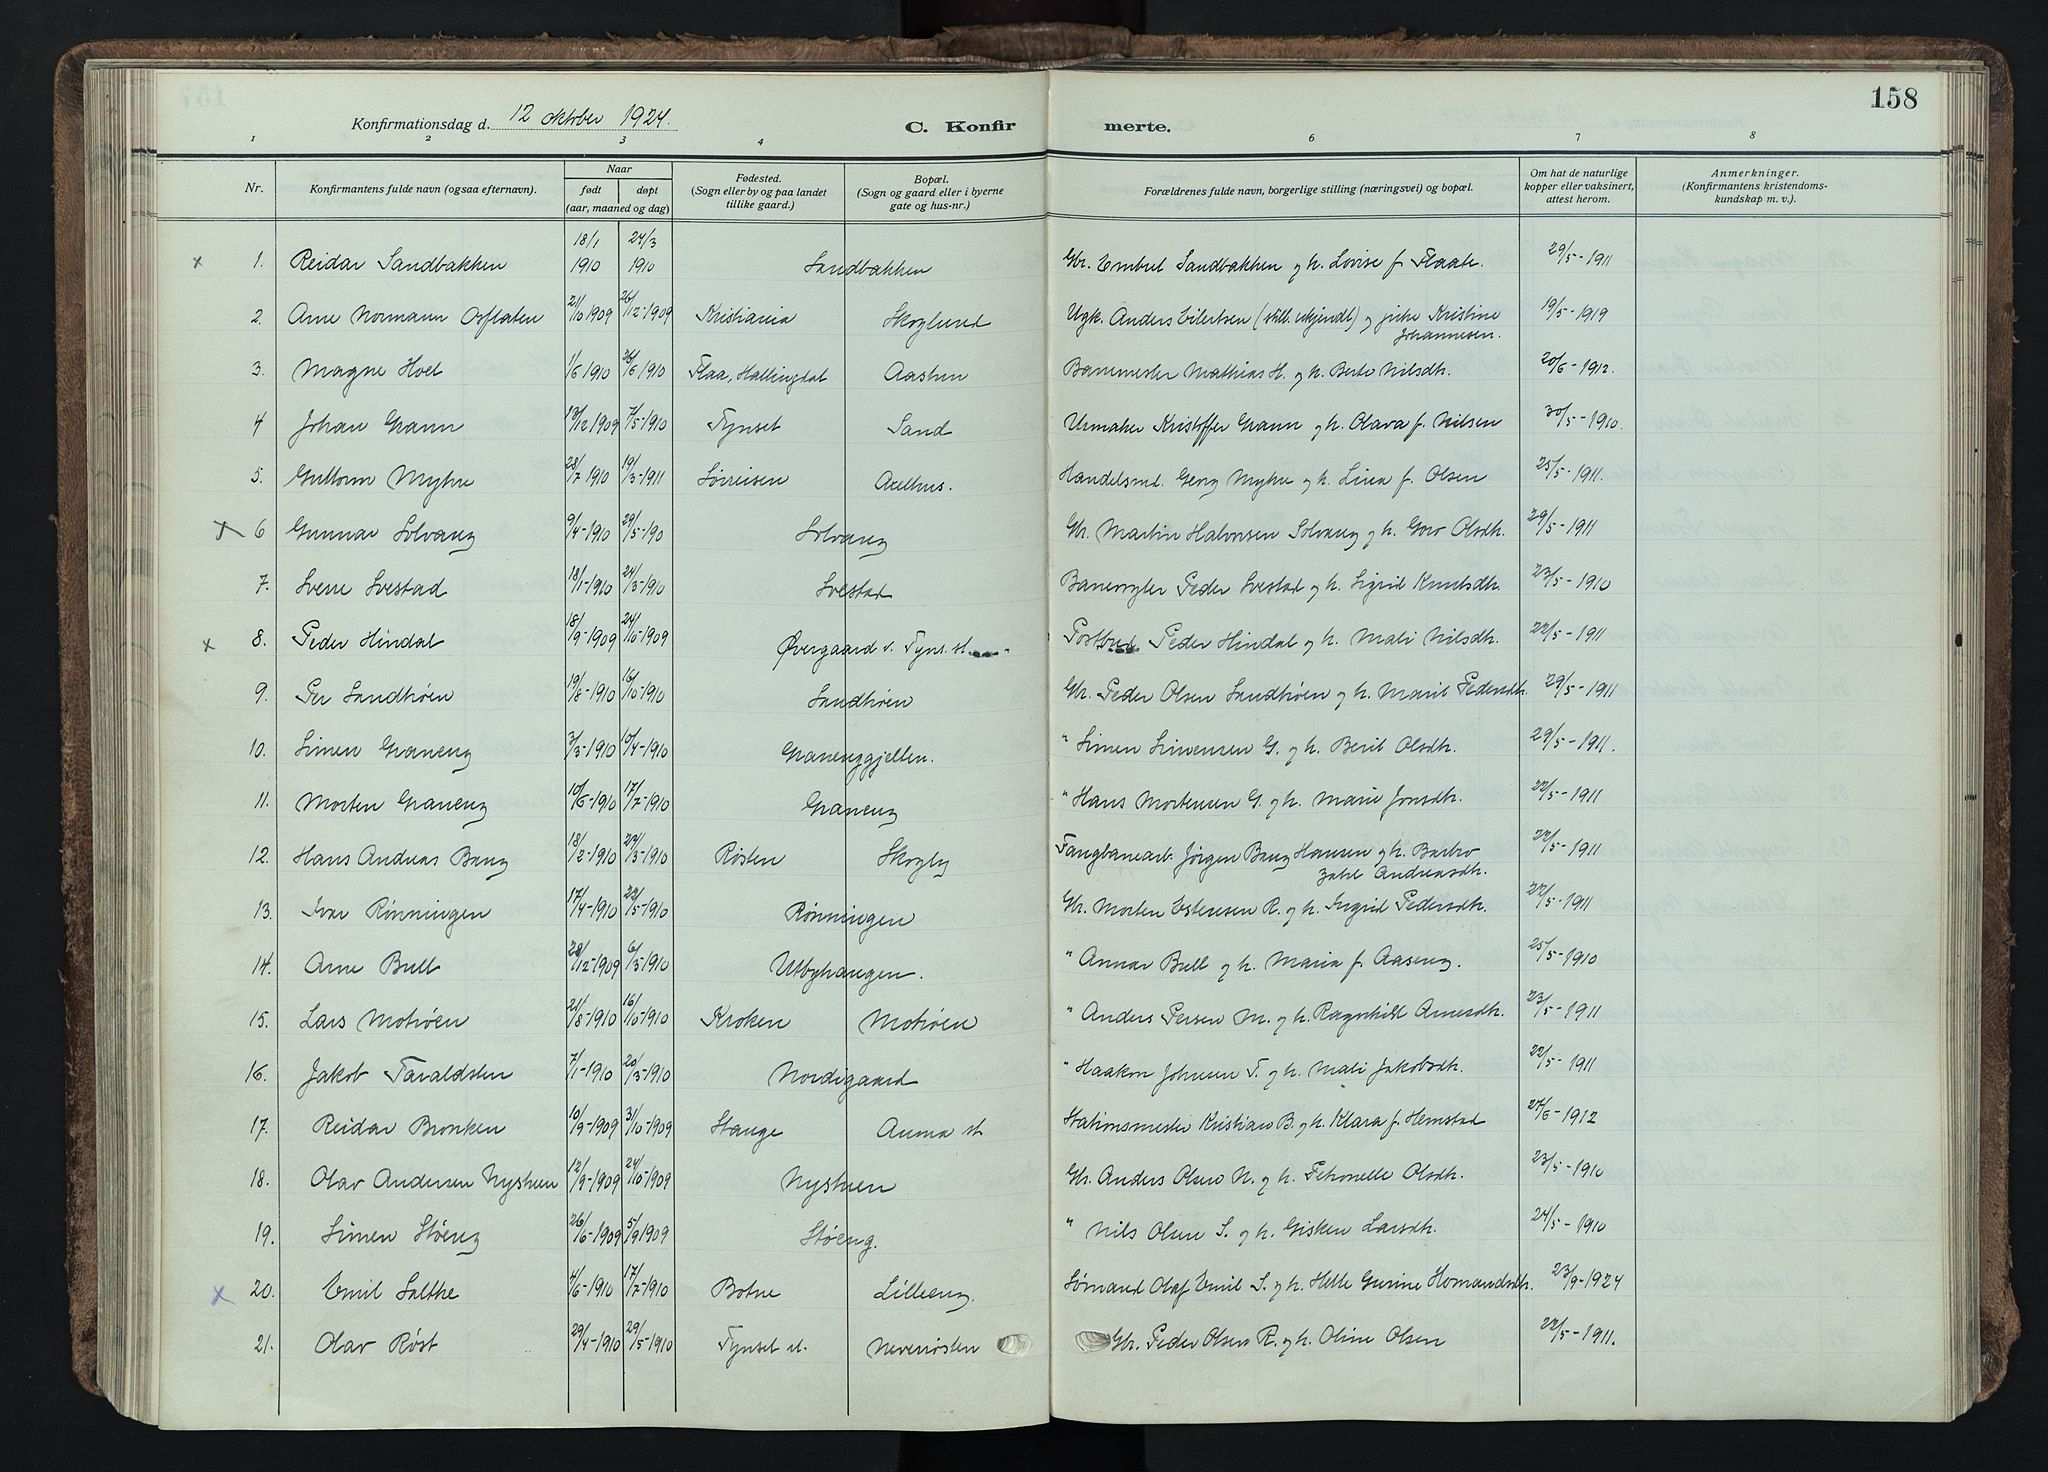 158
Konfirmationsdag d. 12 oktober 1924.
C. Konfirmerte.
1 2 3 4 6 7 8
Nr. Konfirmantens fulde navn (ogsaa efternavn). Naar født døpt (aar, maaned og dag) Fødested. (Sogn eller by og paa landet tillike gaard.) Bopæl. (Sogn og gaard eller i byerne gate og hus-nr.) Forældrenes fulde navn, borgerlige stilling (næringsvei) og bopæl. Om hat de naturlige kopper eller vaksinert, attest herom. Anmerkninger. (Konfirmantens kristendoms-kundskap m. v.).
x 1. Reidar Sandbakken 18/1 1910 24/3 1910 Sandbakken Gbr. Embret Sandbakken og h. Lovise f. Flaate. 29/5-1911
2. Arne Normann Osflaten 21/10 1909 26/12-1909 Kristiania Skoglund Ugk. Anders Eilertsen (still. ukjendt) og pike Kristine Johannesen. 19/5-1919
3. Magne Hoel 1/6 1910 26/6 1910 Flaa, Hallingdal Aasheim Banemester Mathias H. og h. Berte Nilsdh. 20/6-1912.
4 Johan Grann 13/12 1909 7/5-1910 Tynset Sand Urmaker Kristoffer Grann og h. Olava f. Nilsen 30/5-1910.
5. Guttorm Myhre 28/7 1910 19/3-1911 Sørreisen Aalhus. Handelsmd. Georg Myhre og h. Lina f. Olsen 25/5-1911.
x 6 Gunnar Solvang 9/4-1910 29/5-190 Solvang Gbr. Martin Halvorsen Solvang og h. Goro Olsdh. 29/5-1911
7. Sverre Svestad 18/1-1910 24/3-1910 Svestad Banevogter Peder Svestad og h. Sigrid Knutsdh. 23/5-1910
x 8. Peder Hindal 18/9-1909 24/10-1909 Øvergaard v. Tyns. st. Postbud Peder Hindal og h. Mali Nilsdh. 22/5-1911
9. Per Sandtrøen 19/8-1910 16/10-1910 Sandtrøen Gbr. Peder Olsen Sandtrøen og h. Marit Pedersdh. 29/5-1911
10. Simen Graneng 3/3-1910 10/4-1910 Granenggjelten. " Simen Simensen G. og h. Berit Olsdh. 29/5-1911.
11. Morten Graneng 10/6-1910 17/7-1910 Graneng " Hans Mortensen G. og h. Marie Jonsdh. 22/5-1911
12. Hans Andreas Bang 18/2-1910 22/3-1910 Røsten Skogly Fangbanearb. Jørgen Bang Hansen og h. Barbro Zahl Andreasdh. 22/5-1911
13. Ivar Rønningen 17/4-1910 22/5-1910 Rønningen Gbr. Morten Estensen R. og h. Ingrid Pedersdh. 22/5-1911
14. Arne Bull 28/12-1909 6/3-1910 Utbyhaugen. " Annar Bull og h. Maria f. Aaseng. 25/5-1910
15. Lars Motrøen 21/8-1910 16/10-1910 Kroken Motrøen " Anders Persen M. og h. Ragnhild Arnesdh. 23/5-1911
16. Jakob Taraldsten 7/1-1910 20/3-1910 Nordigaard " Haakon Johnsen T. og h. Mali Jakobsdh. 22/5-1911
17. Reidar Bronken 10/9-1909 31/10-1909 Stange Auma st. Stationsmester Kristian B. og h. Klara f. Hemstad 27/6-1912
18. Olav Andersen Nystuen 12/9-1909 24/10-1909 Nystuen Gbr. Anders Olsen N. og h. Petronelle Olsdh. 23/5-1910
19. Simen Støeng 26/6-1909 5/9 1909 Støeng. " Nils Olsen S. og h. Gisken Larsdh. 24/5-1910
x 20. Emil Salthe 4/6-1910 17/7-1910 Botne Lilleeng. Sømand Olaf Emil S. og h. Helle Gurine Homandsdh. 23/9-1924
21. Olav Røst 29/4-1910 29/5-1910 Tynset st. Neverøsten Gbr. Peder Olsen R. og h. Oline Olsen 22/5-1911.